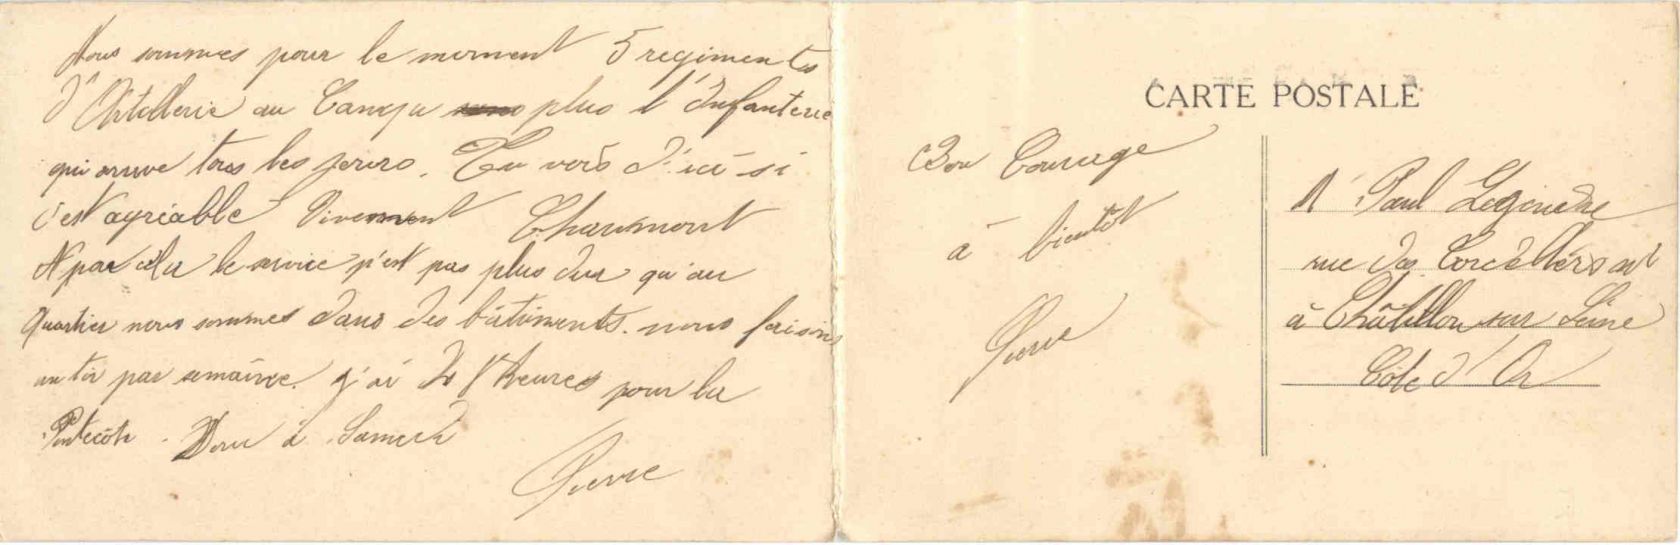 Nous sommes pour le moment 5 regiments
d'Artillerie au Camp plus l'Infanterie
qui arrive tous les jours. Tu vois d'ici si
c'est agréable Vivement Chaumont
A par cela le service n'est pas plus dur qu'au
Quartier nous sommes dans des bâtiments. nous faisons
un tir par semaine. j'ai heures pour la
Pentecôte. Donc à Samedi
Pierre
CARTE POSTALE
Bon Courage
à bientôt
Pierre
Mr Paul
rue des
à Châtillon sur Seine
Côte d'Or